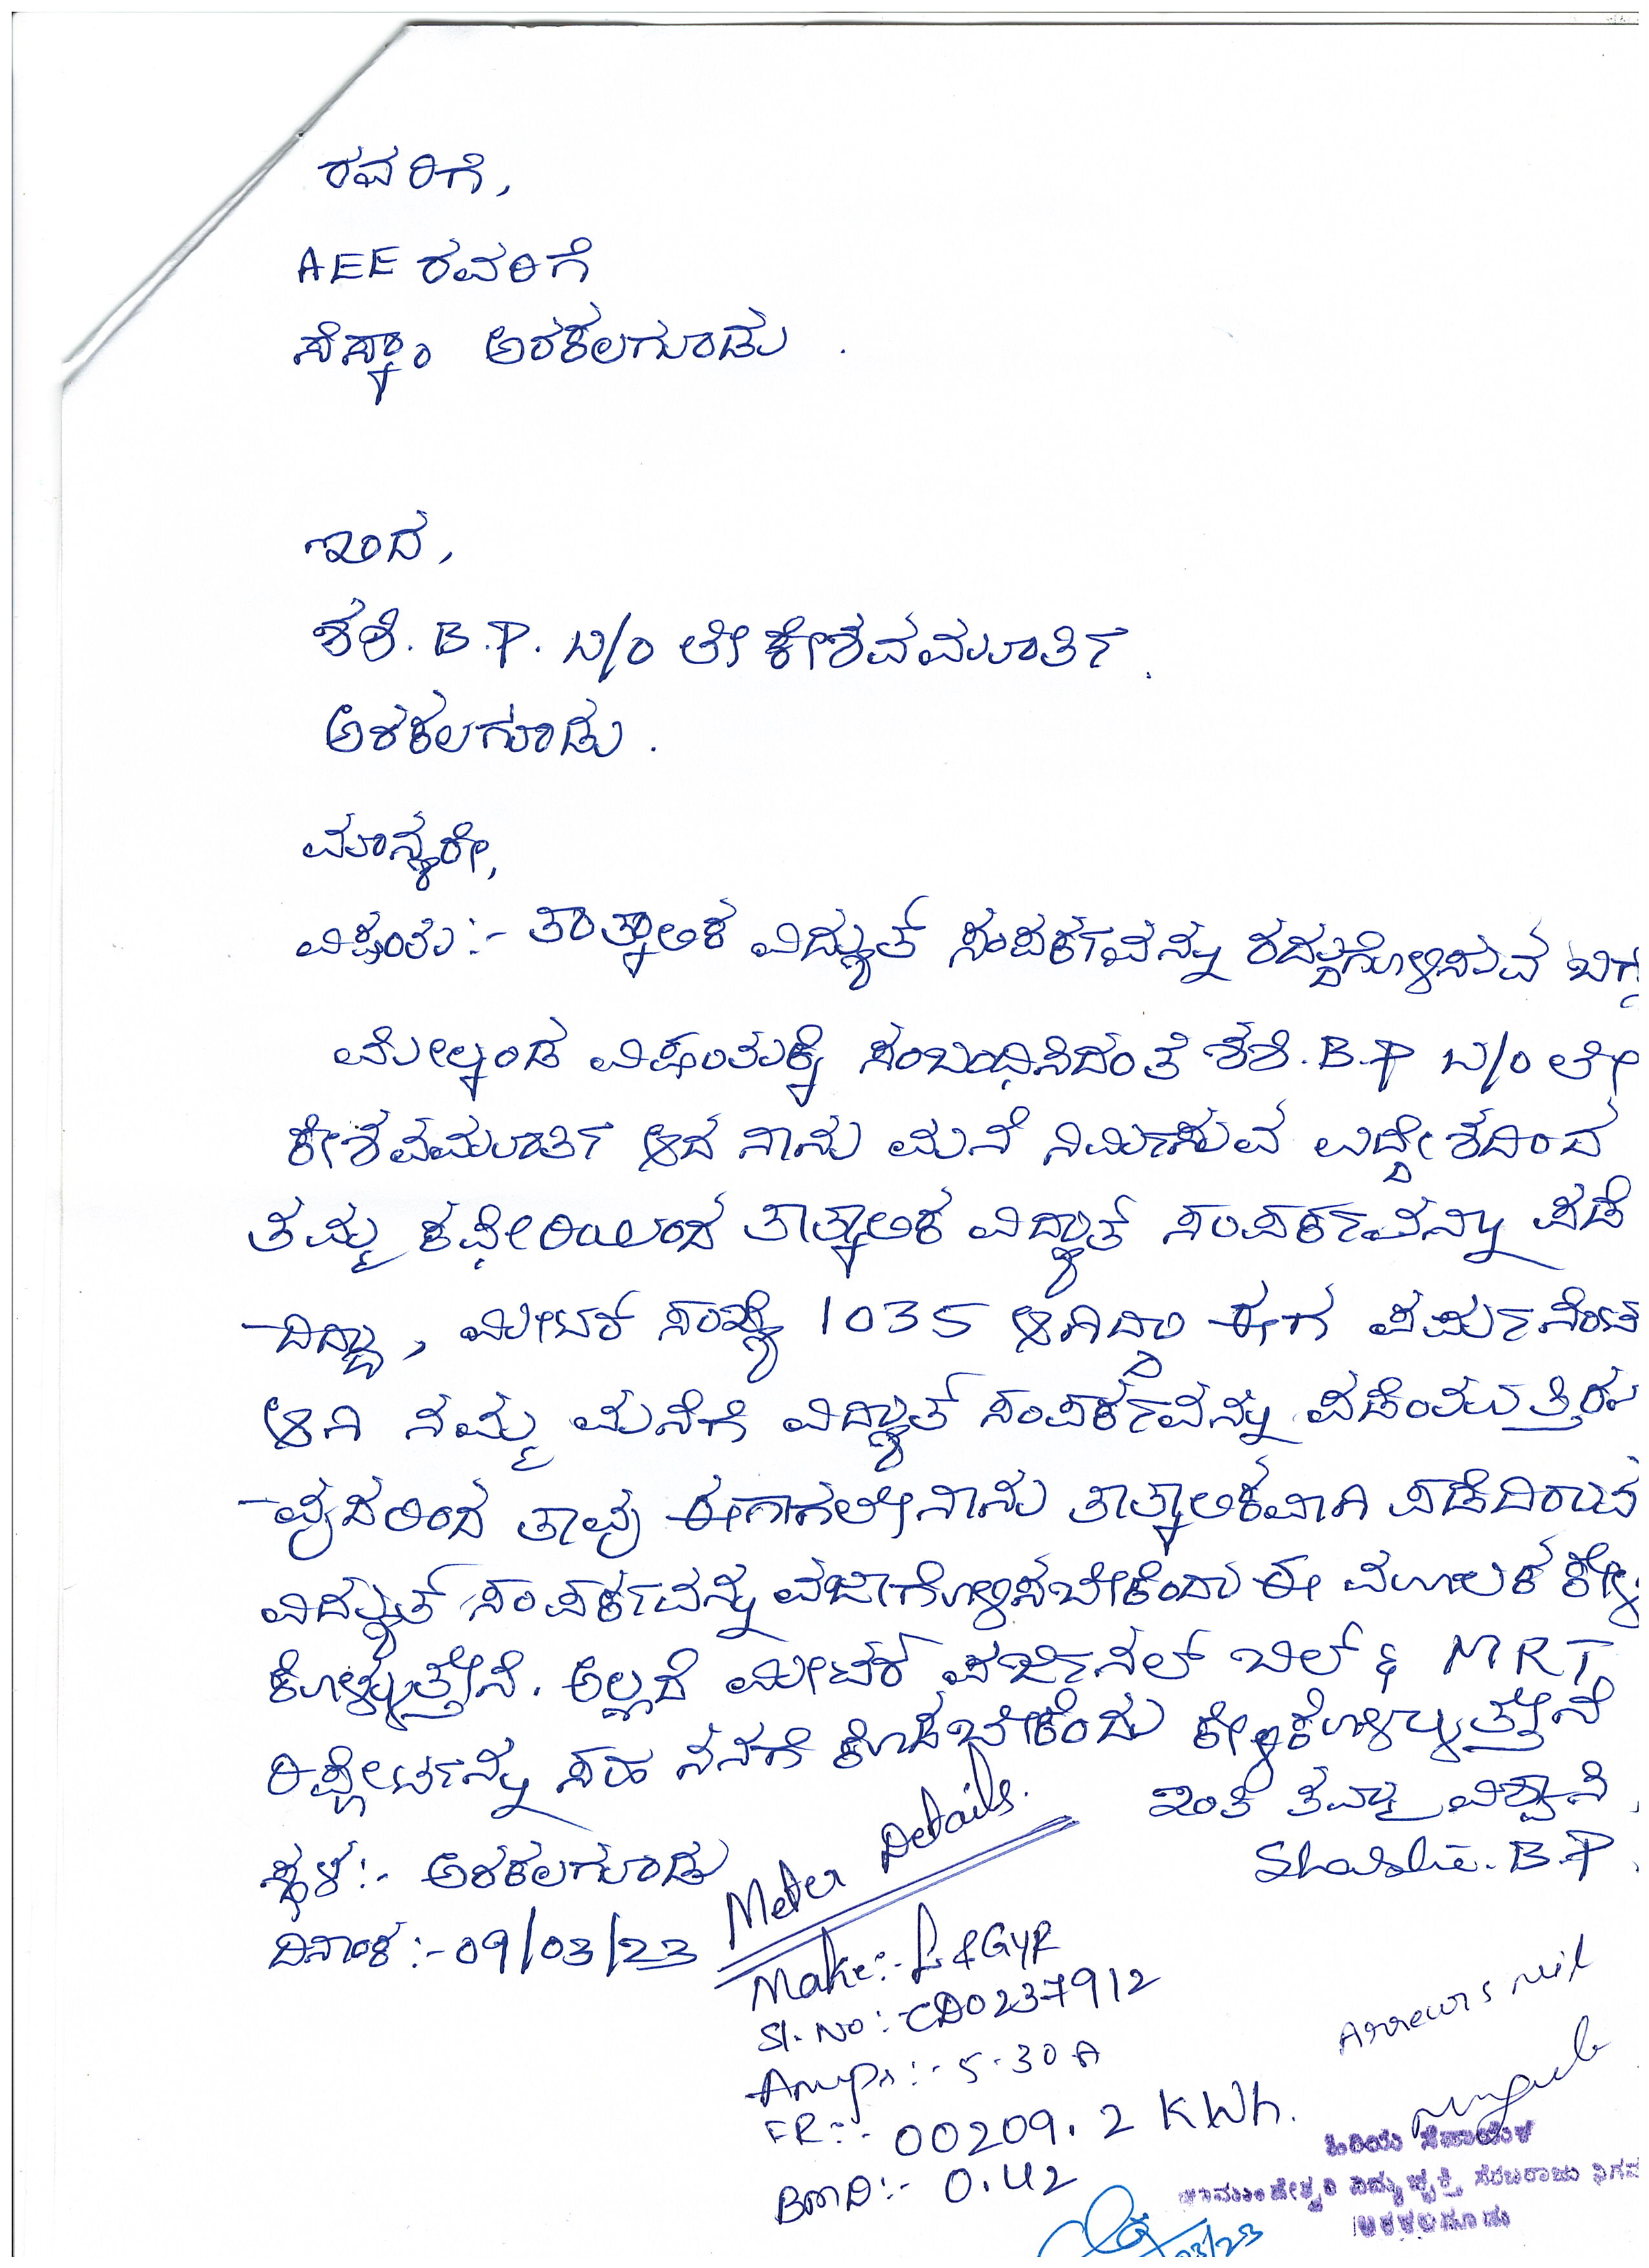 ರವರಿಗೆ,
AEE ರವರಿಗೆ
ಸೆಸ್ಕಾಂ ಅರಕಲಗೂಡು .
ಇಂದ,
ಶಶಿ. B.P. W/O ಲೇ ಕೇಶವಮೂರ್ತಿ.
ಅರಕಲಗೂಡು .
ಮಾನ್ಯರೇ,
ವಿಷಯ :- ತಾತ್ಕಾಲಿಕ ವಿದ್ಯುತ್ ಸಂಪರ್ಕವನ್ನು ರದ್ದುಗೊಳಿಸುವ ಬಗ್ಗೆ
ಮೇಲ್ಕಂಡ ವಿಷಯಕ್ಕೆ ಸಂಬಂಧಿಸಿದಂತೆ ಶಶಿ. B.P W/O ಲೇ
ಕೇಶವಮೂರ್ತಿ ಆದ ನಾನು ಮನೆ ನಿರ್ಮಿಸುವ ಉದ್ದೇಶದಿಂದ
ತಮ್ಮ ಕಛೇರಿಯಿಂದ ತಾತ್ಕಾಲಿಕ ವಿದ್ಯುತ್ ಸಂಪರ್ಕವನ್ನು ಪಡೆ
-ದಿದ್ದು, ಮೀಟರ್ ಸಂಖ್ಯೆ 1035 ಆಗಿದ್ದು ಈಗ ಪರ್ಮನೆಂಟ
ಆಗಿ ನಮ್ಮ ಮನೆಗೆ ವಿದ್ಯುತ್ ಸಂಪರ್ಕವನ್ನು ಪಡೆಯುತ್ತಿರು
-ವುದರಿಂದ ತಾವು ಈಗಾಗಲೇ ನಾನು ತಾತ್ಕಾಲಿಕವಾಗಿ ಪಡೆದಿರುವ
ವಿದ್ಯುತ್ ಸಂಪರ್ಕವನ್ನು ವಜಾಗೊಳಿಸಬೇಕೆಂದು ಈ ಮೂಲಕ ಕೇಳಿ
ಕೊಳ್ಳುತ್ತೇನೆ. ಅಲ್ಲದೆ ಮೀಟರ್ ಒರಿಜಿನಲ್ ಬಿಲ್ & MRT
ರಿಪೋರ್ಟನ್ನು ಸಹ ನನಗೆ ಕೊಡಬೇಕೆಂದು ಕೇಳಿಕೊಳ್ಳುತ್ತೇನೆ
ಇಂತಿ ತಮ್ಮ ವಿಶ್ವಾಸಿ,
Shashi. B.P.
ಸ್ಥಳ :- ಅರಕಲಗೂಡು
ದಿನಾಂಕ :- 09/03/23
Meter Details.
Make:- L&GYR
Sl. No :- CD0237912
Amps :- 5-30 A
FR :- 00209.2 KWh.
BMD :- 0.42
Arrears nil
ಹಿರಿಯ ಸಹಾಯಕ
ಚಾಮುಂಡೇಶ್ವರಿ ವಿದ್ಯುಚ್ಛಕ್ತಿ ಸರಬರಾಜು ನಿಗಮ
ಅರಕಲಗೂಡು
03/23